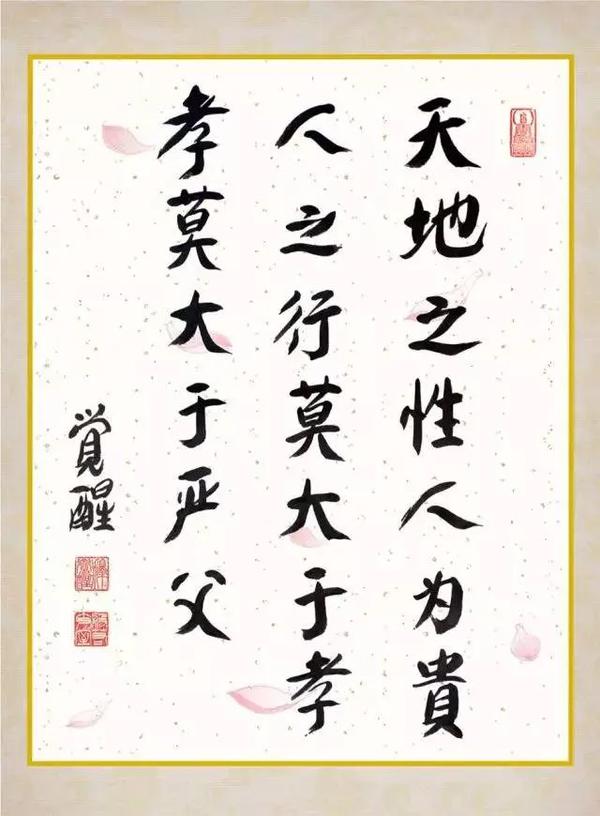 天地之性人为貴
人之行莫大于孝
孝莫大于严父
覚醒